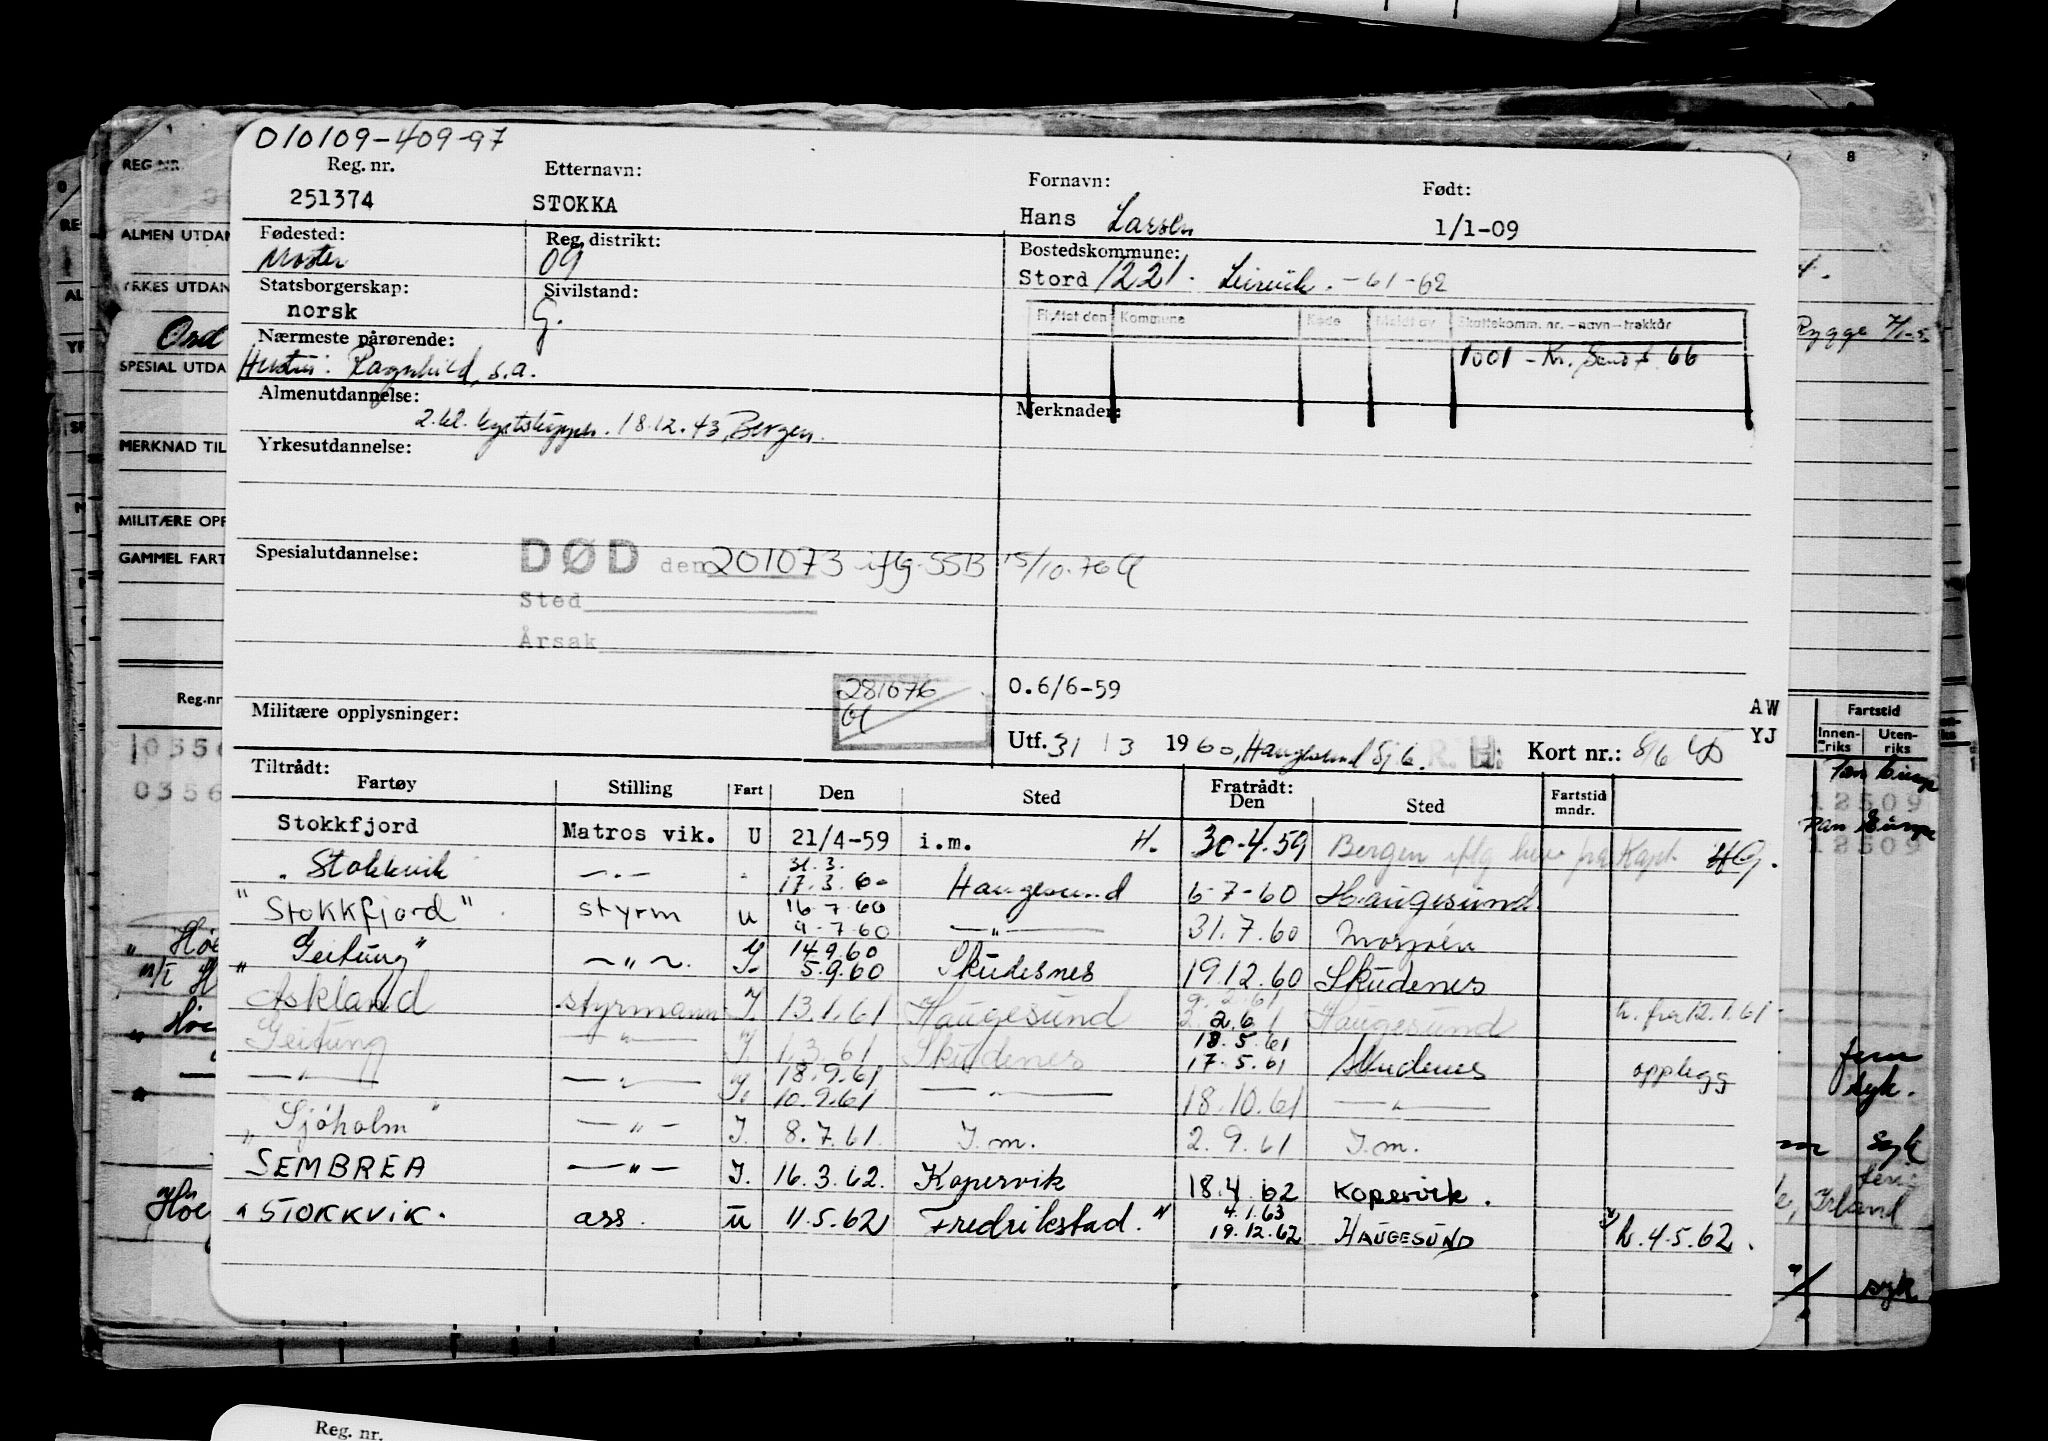 010109-409-97
Reg. nr. Etternavn: Fornavn: Født:
251374 STOKKA Hans Larsen 1/1-09
Fødested: Reg. distrikt: Bostedskommune:
Moster 09 Stord 1221. Leirvik. -61-62
Statsborgerskap: Sivilstand:
norsk G.
Flyttet den Kommune Kode Meldt av Skattekomm. nr. - navn - trekkår
1001 - Kr. Sand 66
Nærmeste pårørende:
Hustru: Ragnhild, s.a.
Almenutdannelse: Merknader:
2. kl. kystskipper. 18.12.43, Bergen.
Yrkesutdannelse:
Spesialutdannelse: DØD den 201073 iflg. SSB 15/10-76
Sted
Årsak
281076 0.6/6-59
Militære opplysninger: AW
Utf. 31/3 1960, Haugesund R.H. Kort nr.: 8/6 YJ
Tiltrådt: Fratrådt:
Fartøy Stilling Fart Den Sted Den Sted Fartstid mndr.
Stokkfjord Matros vik. U 21/4-59 i.m. H. 30-4.59 Bergen iflg brev fra Kapt. HG.
31.3.
" Stokkvik —"— 17.3.60 Haugesund 6-7-60 Haugesund
16.7.60
"Stokkfjord" styrm U 9-7-60 —"— 31.7.60 Mosjøen
14.9.60
"Geitung" —"— I. 5.9.60 Skudesnes 19.12.60 Skudenes
Askland styrmann I. 13.1.61 Haugesund 2.61 Haugesund h. fra 12.1.61
18.5.61
Geitung —"— I. 1.3.61 Skudenes 17.5.61 Skudenes opplegg
18.9.61
—"— —"— I. 10.9.61 —"— 18.10.61 —"—
"Sjøholm" —"— I. 8.7.61. I.m. 2.9.61 I.m.
SEMBREA —"— I. 16.3.62. Kopervik 18.4.62 Kopervik.
4.1.63
" STOKKVIK. ass. U 11.5.62 Fredrikstad." 19.12.62 HAUGESUND h. 4.5.62.
REG.NR.
ALMEN UTDAN
YRKES UTDAN
SPESIAL UTDA
MERKNAD TIL
MILITÆRE OPP
GAMMEL FART
Reg.nr
8
Rygge
Fartstid
Innenriks Utenriks
12509
12509
syk.
syk
Irland
syk
Reg. nr.